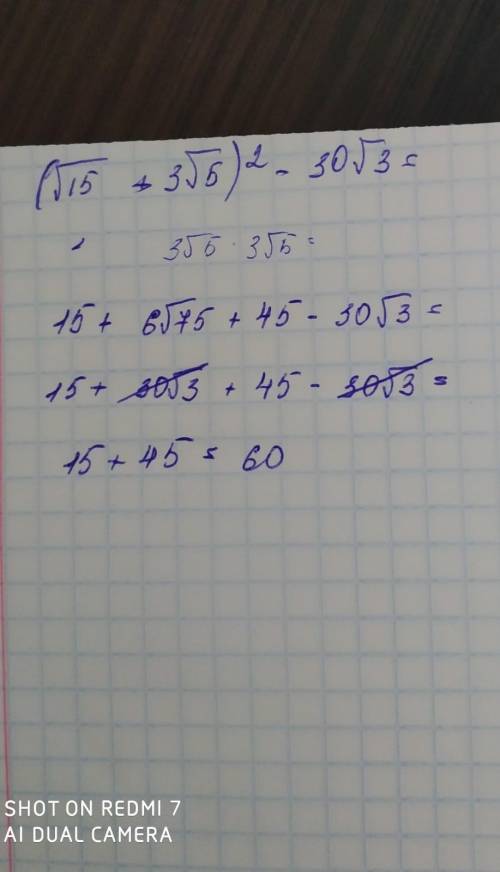 (√15 + 3√5)² - 30√3 =
3√5 · 3√5 =
15 + 6√75 + 45 - 30√3 =
15 + 30√3 + 45 - 30√3 =
15 + 45 = 60
SHOT ON REDMI 7
AI DUAL CAMERA